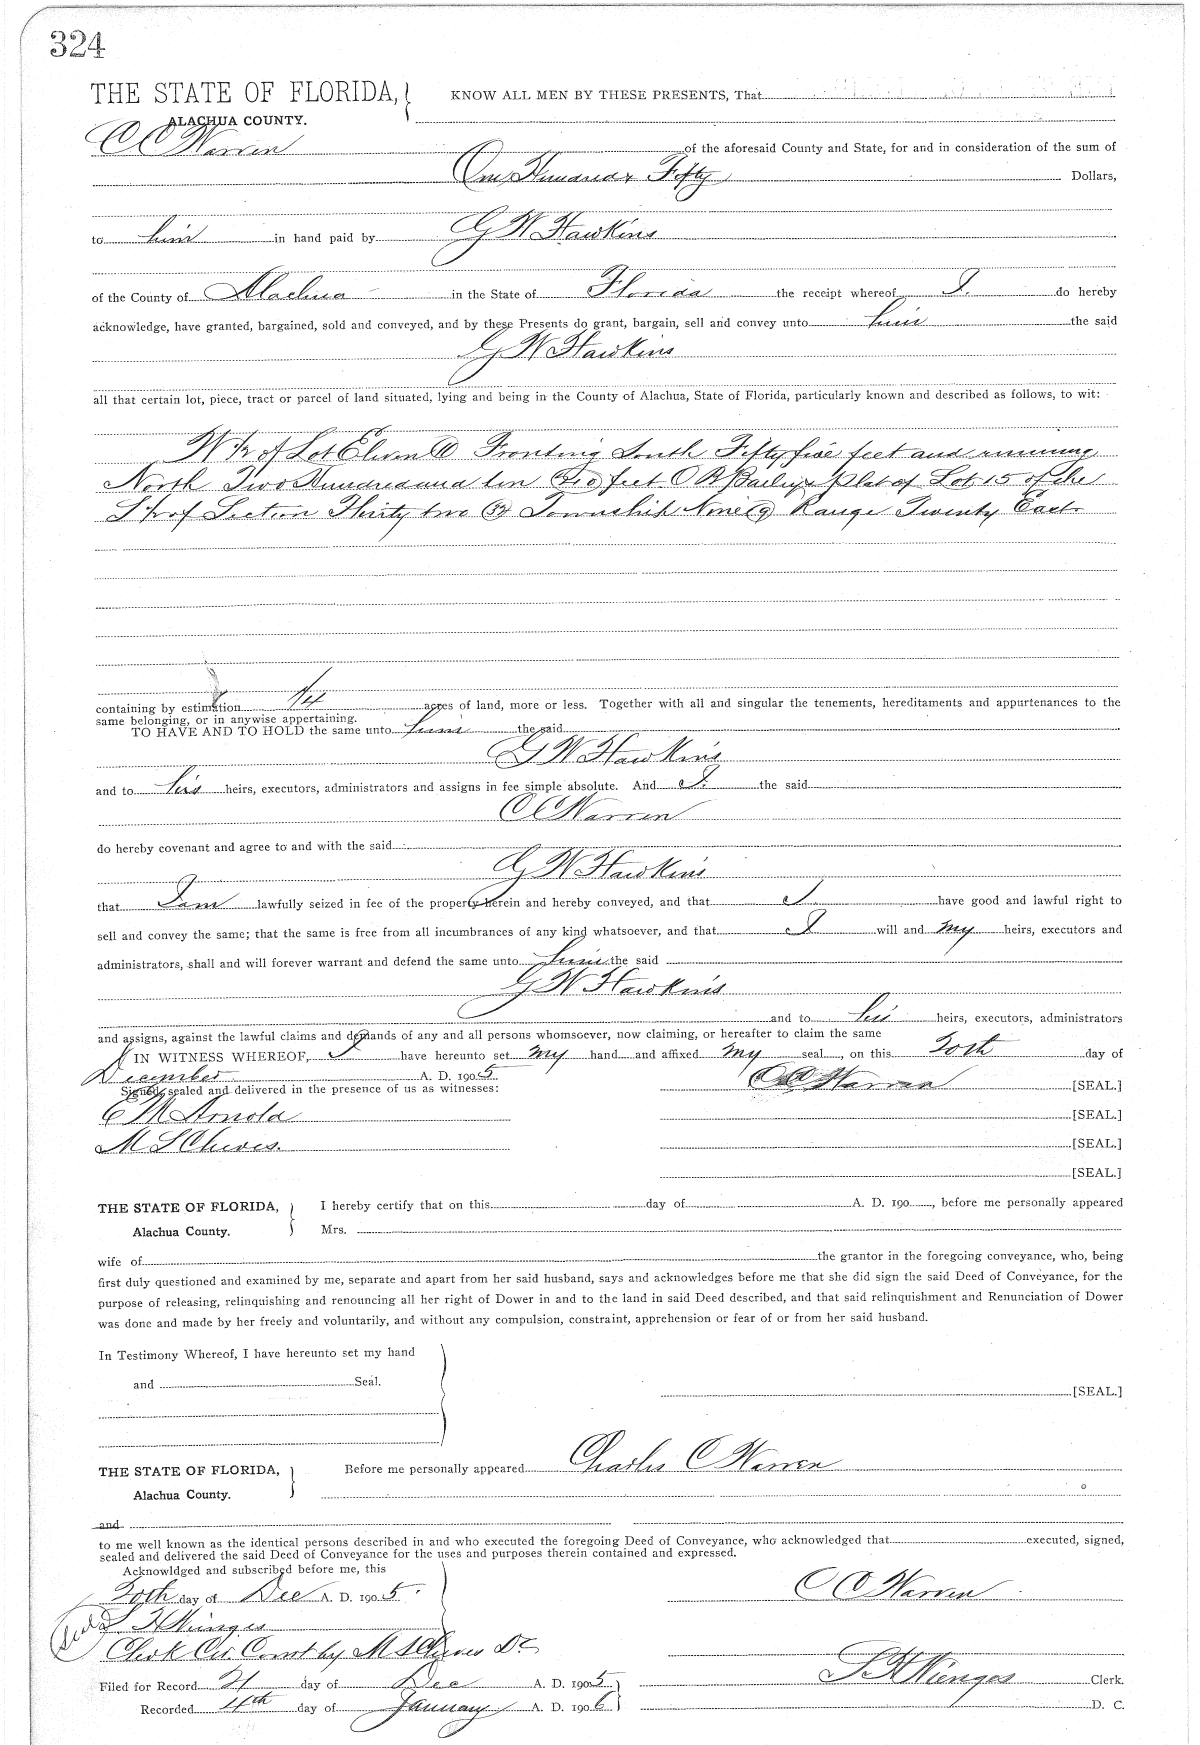 324
THE STATE OF FLORIDA, KNOW ALL MEN BY THESE PRESENTS, That
ALACHUA COUNTY.
C C Warren of the aforesaid County and State, for and in consideration of the sum of
One Hundred & Fifty Dollars,
to him in hand paid by G W Hawkins
of the County of Alachua in the State of Florida the receipt whereof I do hereby
acknowledge, have granted, bargained, sold and conveyed, and by these Presents do grant, bargain, sell and convey unto him the said
G W Hawkins
all that certain lot, piece, tract or parcel of land situated, lying and being in the County of Alachua, State of Florida, particularly known and described as follows, to wit:
W ½ of Lot Eleven (11) Fronting South Fifty five feet and running
North Two Hundred and ten (210) feet O R Bailey's Plat of Lot 15 of the
S ½ of Section Thirty two (32) Township Nine (9) Range Twenty East
containing by estimation 1/4 acres of land, more or less. Together with all and singular the tenements, hereditaments and appurtenances to the
same belonging, or in anywise appertaining.
TO HAVE AND TO HOLD the same unto him the said
G W Hawkins
and to his heirs, executors, administrators and assigns in fee simple absolute. And I the said
C C Warren
do hereby covenant and agree to and with the said
G W Hawkins
that I am lawfully seized in fee of the property herein and hereby conveyed, and that I have good and lawful right to
sell and convey the same; that the same is free from all incumbrances of any kind whatsoever, and that I will and my heirs, executors and
administrators, shall and will forever warrant and defend the same unto him the said
G W Hawkins
and to his heirs, executors, administrators
and assigns, against the lawful claims and demands of any and all persons whomsoever, now claiming, or hereafter to claim the same
IN WITNESS WHEREOF, I have hereunto set my hand and affixed my seal, on this 20th day of
December A. D. 1905
Signed, sealed and delivered in the presence of us as witnesses: C C Warren [SEAL.]
E M Arnold [SEAL.]
M S Cheves. [SEAL.]
[SEAL.]
THE STATE OF FLORIDA, I hereby certify that on this day of A. D. 190 , before me personally appeared
Alachua County. Mrs.
wife of the grantor in the foregoing conveyance, who, being
first duly questioned and examined by me, separate and apart from her said husband, says and acknowledges before me that she did sign the said Deed of Conveyance, for the
purpose of releasing, relinquishing and renouncing all her right of Dower in and to the land in said Deed described, and that said relinquishment and Renunciation of Dower
was done and made by her freely and voluntarily, and without any compulsion, constraint, apprehension or fear of or from her said husband.
In Testimony Whereof, I have hereunto set my hand
and Seal.
[SEAL.]
THE STATE OF FLORIDA, Before me personally appeared Charles C Warren
Alachua County.
and
to me well known as the identical persons described in and who executed the foregoing Deed of Conveyance, who acknowledged that executed, signed,
sealed and delivered the said Deed of Conveyance for the uses and purposes therein contained and expressed.
Acknowldged and subscribed before me, this
20th day of Dec A. D. 1905. C C Warren
Seal S H Wienges
Clerk Cir. Court by M S Cheves D C
Filed for Record 21 day of Dec A. D. 1905 S H Wienges Clerk.
Recorded 4th day of January A. D. 1906 D. C.